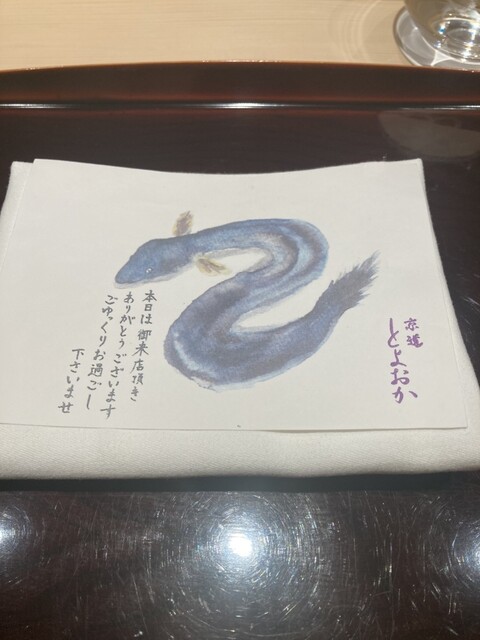 京遊
とよおか
本日は御来店頂き
ありがとうございます
ごゆっくりお過ごし
下さいませ